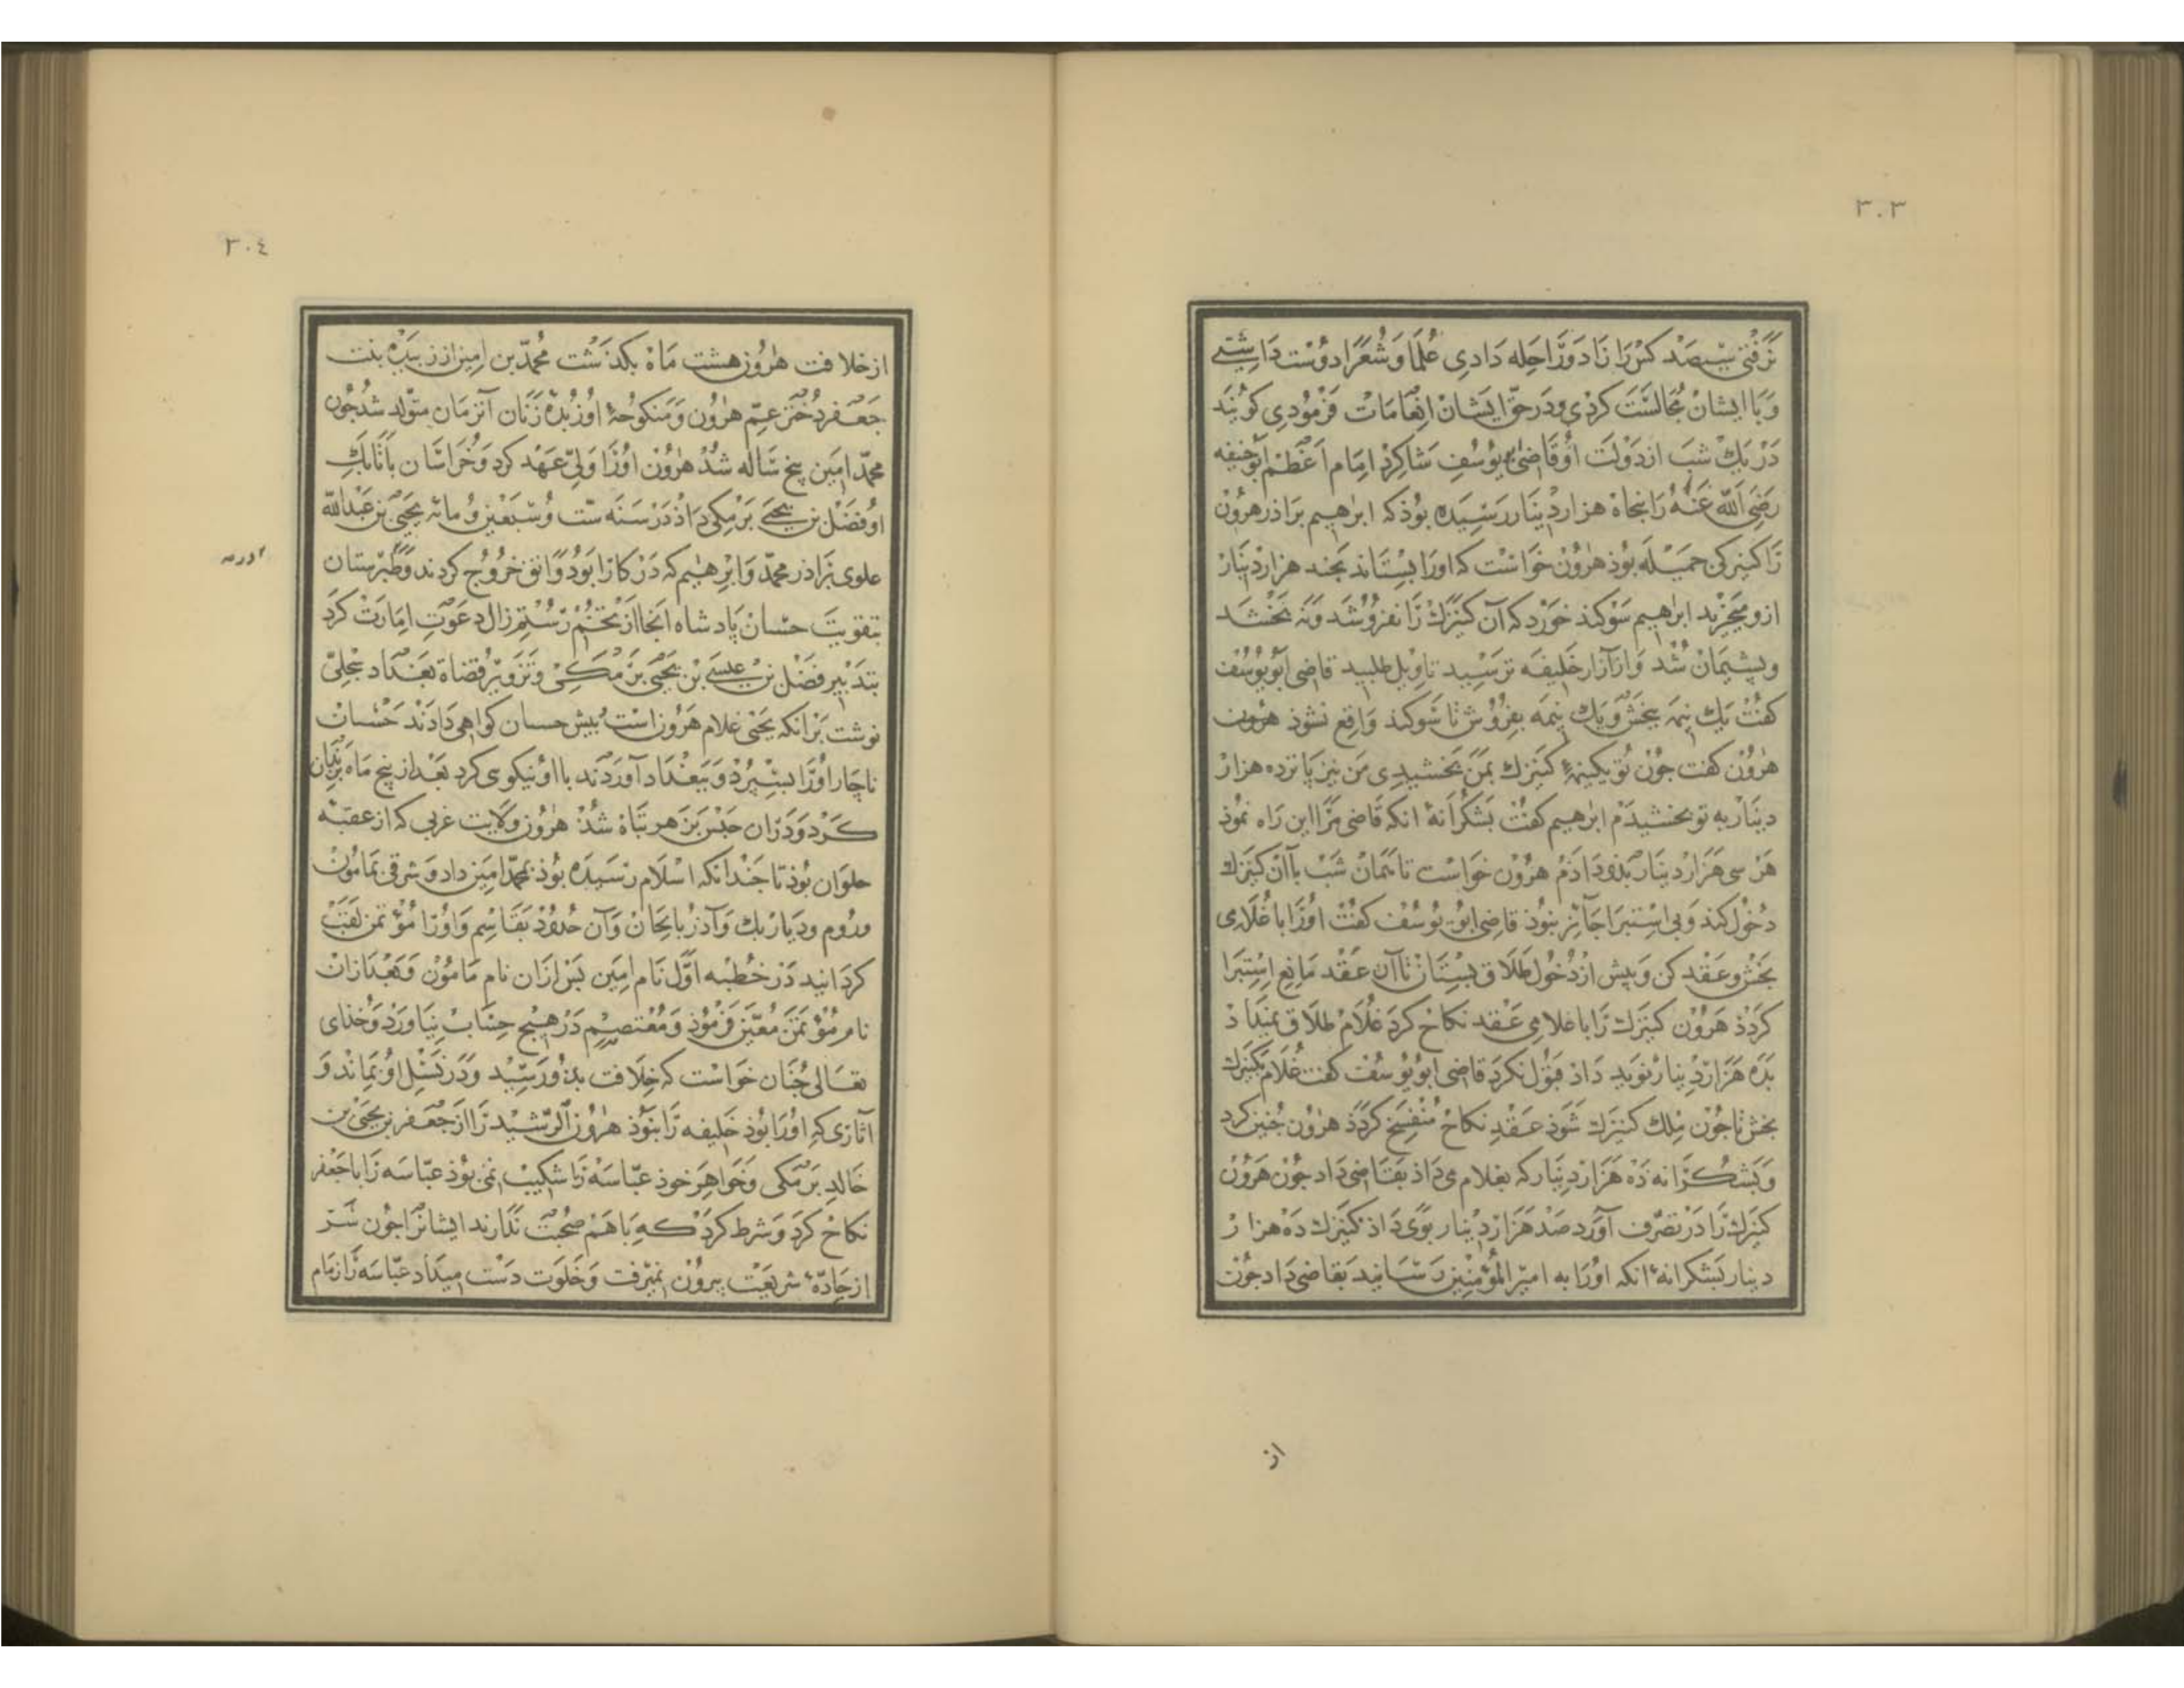 ۳۰۳
نرفتی سیصد کس را زاد و راحله دادی علما و شعرا دوست داشتی
و با ایشان مجالست کردی و در حق ایشان انعامات فرمودی کویند
در یك شب از دولت او قاضی بویوسف شاکرد امام اعظم ابوحنیفه
رضی الله عنه را بنجاه هزار دینار رسیده بوذ که ابرهیم براذر هرون
را کنیزکی جمیله بوذ هرون خواست که اورا بستاند بجند هزار دینار
ازو میخرید ابرهیم سوکند خورد که آن کنیزك را نفروشد و نه بخشد
و بشیمان شد و از آزار خلیفه ترسید تاویل طلبید قاضی ابویوسف
کفت یك نیمه ببخش و یك نیمه بفروش تا سوکند واقع نشوذ هرون
هرون کفت جون تو یکنیمهٔ کنیزك بمن بخشیدی من نیز پانزده هزار
دینار به تو بخشیدم ابرهیم کفت بشکرانهٔ انکه قاضی مرا این راه نموذ
هر سی هزار دینار بذو داذم هرون خواست تا همان شب با آن کنیزك
دخول کند و بی استبرا جائز نبوذ قاضی ابو یوسف کفت اورا با غلامی
بخش و عقد کن و پیش از دخول طلاق بستان تا آن عقد مانع استبرا
کردذ هرون کنیزك را با غلامی عقد نکاح کرد غلام طلاق نمیداد
بده هزار دینار نوید داذ قبول نکرد قاضی ابویوسف کفت غلام بکنیزك
بخش تا جون ملك کنیزك شوذ عقد نکاح منفسخ کردذ هرون جنین کرد
و بشکرانه ده هزار دینار که بغلام می داذ بقاضی داد جون هرون
کنیزك را در تصرف آورد صد هزار دینار بوی داذ کنیزك ده هزار
دینار بشکرانهٔ انکه اورا به امیر المؤمنین رسانید بقاضی داد جون
از
۳۰٤
از خلافت هرون هشت ماه بکذشت محمد بن امین از زبیده بنت
جعفر دختر عم هرون و منکوحهٔ او زبدهٔ زنان آنزمان متولد شد جون
محمد امین پنج ساله شد هرون اورا ولی عهد کرد و خراسان با تابك
او فضل بن یحیی برمکی داذ در سنه ست و سبعین و مائه یحیی بن عبدالله
علوی براذر محمد و ابرهیم که در کارابو دوانق خروج کردند و طبرستان
بتقویت حسان پادشاه انجا از تخم رستم زال دعوت امارت کرد
بتدبیر فضل بن عیسی بن یحیی برمکی و تزویر قضاة بغداد سجلی
نوشت بر انکه یحیی غلام هرون است بیش حسان کواهی دادند حسان
ناچار اورا بسپرد و ببغداد آوردند با او نیکوی کرد بعد از پنج ماه بزندان
کرد و در ان حبس بزهر تباه شد هرون ولایت غربی که از عقبه
حلوان بوذ تا جندانکه اسلام رسیده بوذ بمحمد امین داد و شرقی بمامون
و روم و دیار بك و آذربایجان و آن حدوذ بقاسم و اورا مؤتمن لقب
کردانید در خطبه اول نام امین بس از ان نام مامون و بعد از ان
نام مؤتمن معین فرموذ و معتصم در هیچ حساب نیاورد و خذای
تعالی جنان خواست که خلافت بذو رسید و در نسل او بماند و
آثاری که اورا بوذ خلیفه را نبوذ هرون الرشید را از جعفر بن یحیی بن
خالد برمکی و خواهر خوذ عباسه را شکیب نمی بوذ عباسه را با جعفر
نکاح کرد و شرط کرد که با هم صحبت ندارند ایشانرا جون شر
از جادهٔ شریعت بیرون نمیرفت و خلوت دست میداد عباسه را زمام